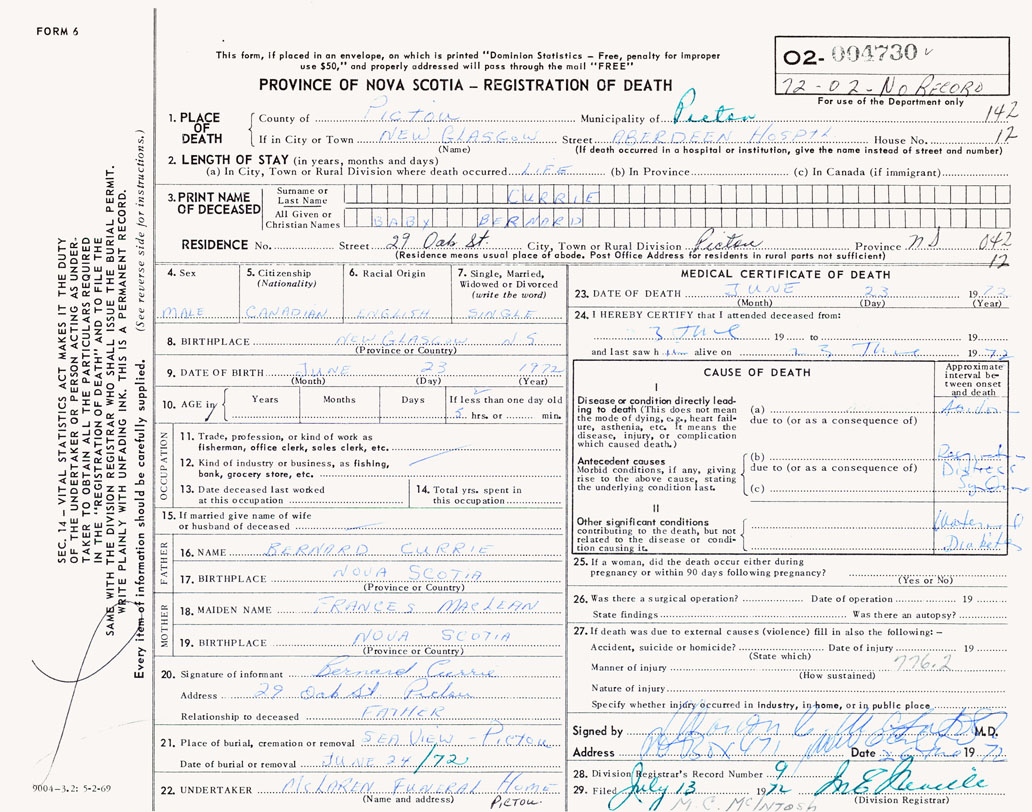 FORM 6
This form, if placed in an envelope, on which is printed "Dominion Statistics – Free, penalty for improper
use $50," and properly addressed will pass through the mail "FREE"
O2-004730
72-02-No Record
For use of the Department only
PROVINCE OF NOVA SCOTIA – REGISTRATION OF DEATH
142
12
1. PLACE OF DEATH
County of PICTOU Municipality of Pictou
If in City or Town NEW GLASGOW Street ABERDEEN HOSPTL House No.
(Name) (If death occurred in a hospital or institution, give the name instead of street and number)
2. LENGTH OF STAY (in years, months and days)
(a) In City, Town or Rural Division where death occurred LIFE (b) In Province (c) In Canada (if immigrant)
3. PRINT NAME OF DECEASED
Surname or Last Name CURRIE
All Given or Christian Names BABY BERNARD
RESIDENCE No. Street 29 Oak St. City, Town or Rural Division Pictou Province NS 042
12
(Residence means usual place of abode. Post Office Address for residents in rural parts not sufficient)
4. Sex
MALE
5. Citizenship
(Nationality)
CANADIAN
6. Racial Origin
ENGLISH
7. Single, Married,
Widowed or Divorced
(write the word)
SINGLE
8. BIRTHPLACE NEW GLASGOW N S
(Province or Country)
9. DATE OF BIRTH JUNE 23 1972
(Month) (Day) (Year)
10. AGE in
Years Months Days If less than one day old
5 hrs. or min.
OCCUPATION
11. Trade, profession, or kind of work as
fisherman, office clerk, sales clerk, etc.
12. Kind of industry or business, as fishing,
bank, grocery store, etc.
13. Date deceased last worked
at this occupation
14. Total yrs. spent in
this occupation
15. If married give name of wife
or husband of deceased
FATHER
16. NAME BERNARD CURRIE
17. BIRTHPLACE NOVA SCOTIA
(Province or Country)
MOTHER
18. MAIDEN NAME FRANCES MACLEAN
19. BIRTHPLACE NOVA SCOTIA
(Province or Country)
20. Signature of informant Bernard Currie
Address 29 Oak St Pictou
Relationship to deceased FATHER
21. Place of burial, cremation or removal SEA VIEW – PICTOU
Date of burial or removal JUNE 24/72
22. UNDERTAKER McLAREN FUNERAL HOME
(Name and address) PICTOU.
MEDICAL CERTIFICATE OF DEATH
23. DATE OF DEATH JUNE 23 1972
(Month) (Day) (Year)
24. I HEREBY CERTIFY that I attended deceased from:
19 to 19
and last saw him alive on 1972
CAUSE OF DEATH
Approximate
interval be-
tween onset
and death
I
Disease or condition directly lead-
ing to death (This does not mean
the mode of dying, e.g., heart fail-
ure, asthenia, etc. It means the
disease, injury, or complication
which caused death.)
(a)
due to (or as a consequence of)
Antecedent causes
Morbid conditions, if any, giving
rise to the above cause, stating
the underlying condition last.
(b)
due to (or as a consequence of)
(c)
Distress
II
Other significant conditions
contributing to the death, but not
related to the disease or condi-
tion causing it.
Maternal
Diabetes
25. If a woman, did the death occur either during
pregnancy or within 90 days following pregnancy?
(Yes or No)
26. Was there a surgical operation? Date of operation 19
State findings Was there an autopsy?
27. If death was due to external causes (violence) fill in also the following: –
Accident, suicide or homicide? Date of injury 19
(State which)
776.2
Manner of injury
(How sustained)
Nature of injury
Specify whether injury occurred in industry, in home, or in public place
Signed by M.D.
Address Box 471 Date 1972
28. Division Registrar's Record Number 9
29. Filed July 13 1972
M. C. McINTOSH (Division Registrar)
SEC. 14 – VITAL STATISTICS ACT MAKES IT THE DUTY
OF THE UNDERTAKER OR PERSON ACTING AS UNDER-
TAKER TO OBTAIN ALL THE PARTICULARS REQUIRED
IN THE "REGISTRATION OF DEATH" AND TO FILE THE
SAME WITH THE DIVISION REGISTRAR WHO SHALL ISSUE THE BURIAL PERMIT.
WRITE PLAINLY WITH UNFADING INK. THIS IS A PERMANENT RECORD.
Every item of information should be carefully supplied. (See reverse side for instructions.)
9004-3.2: 5-2-69